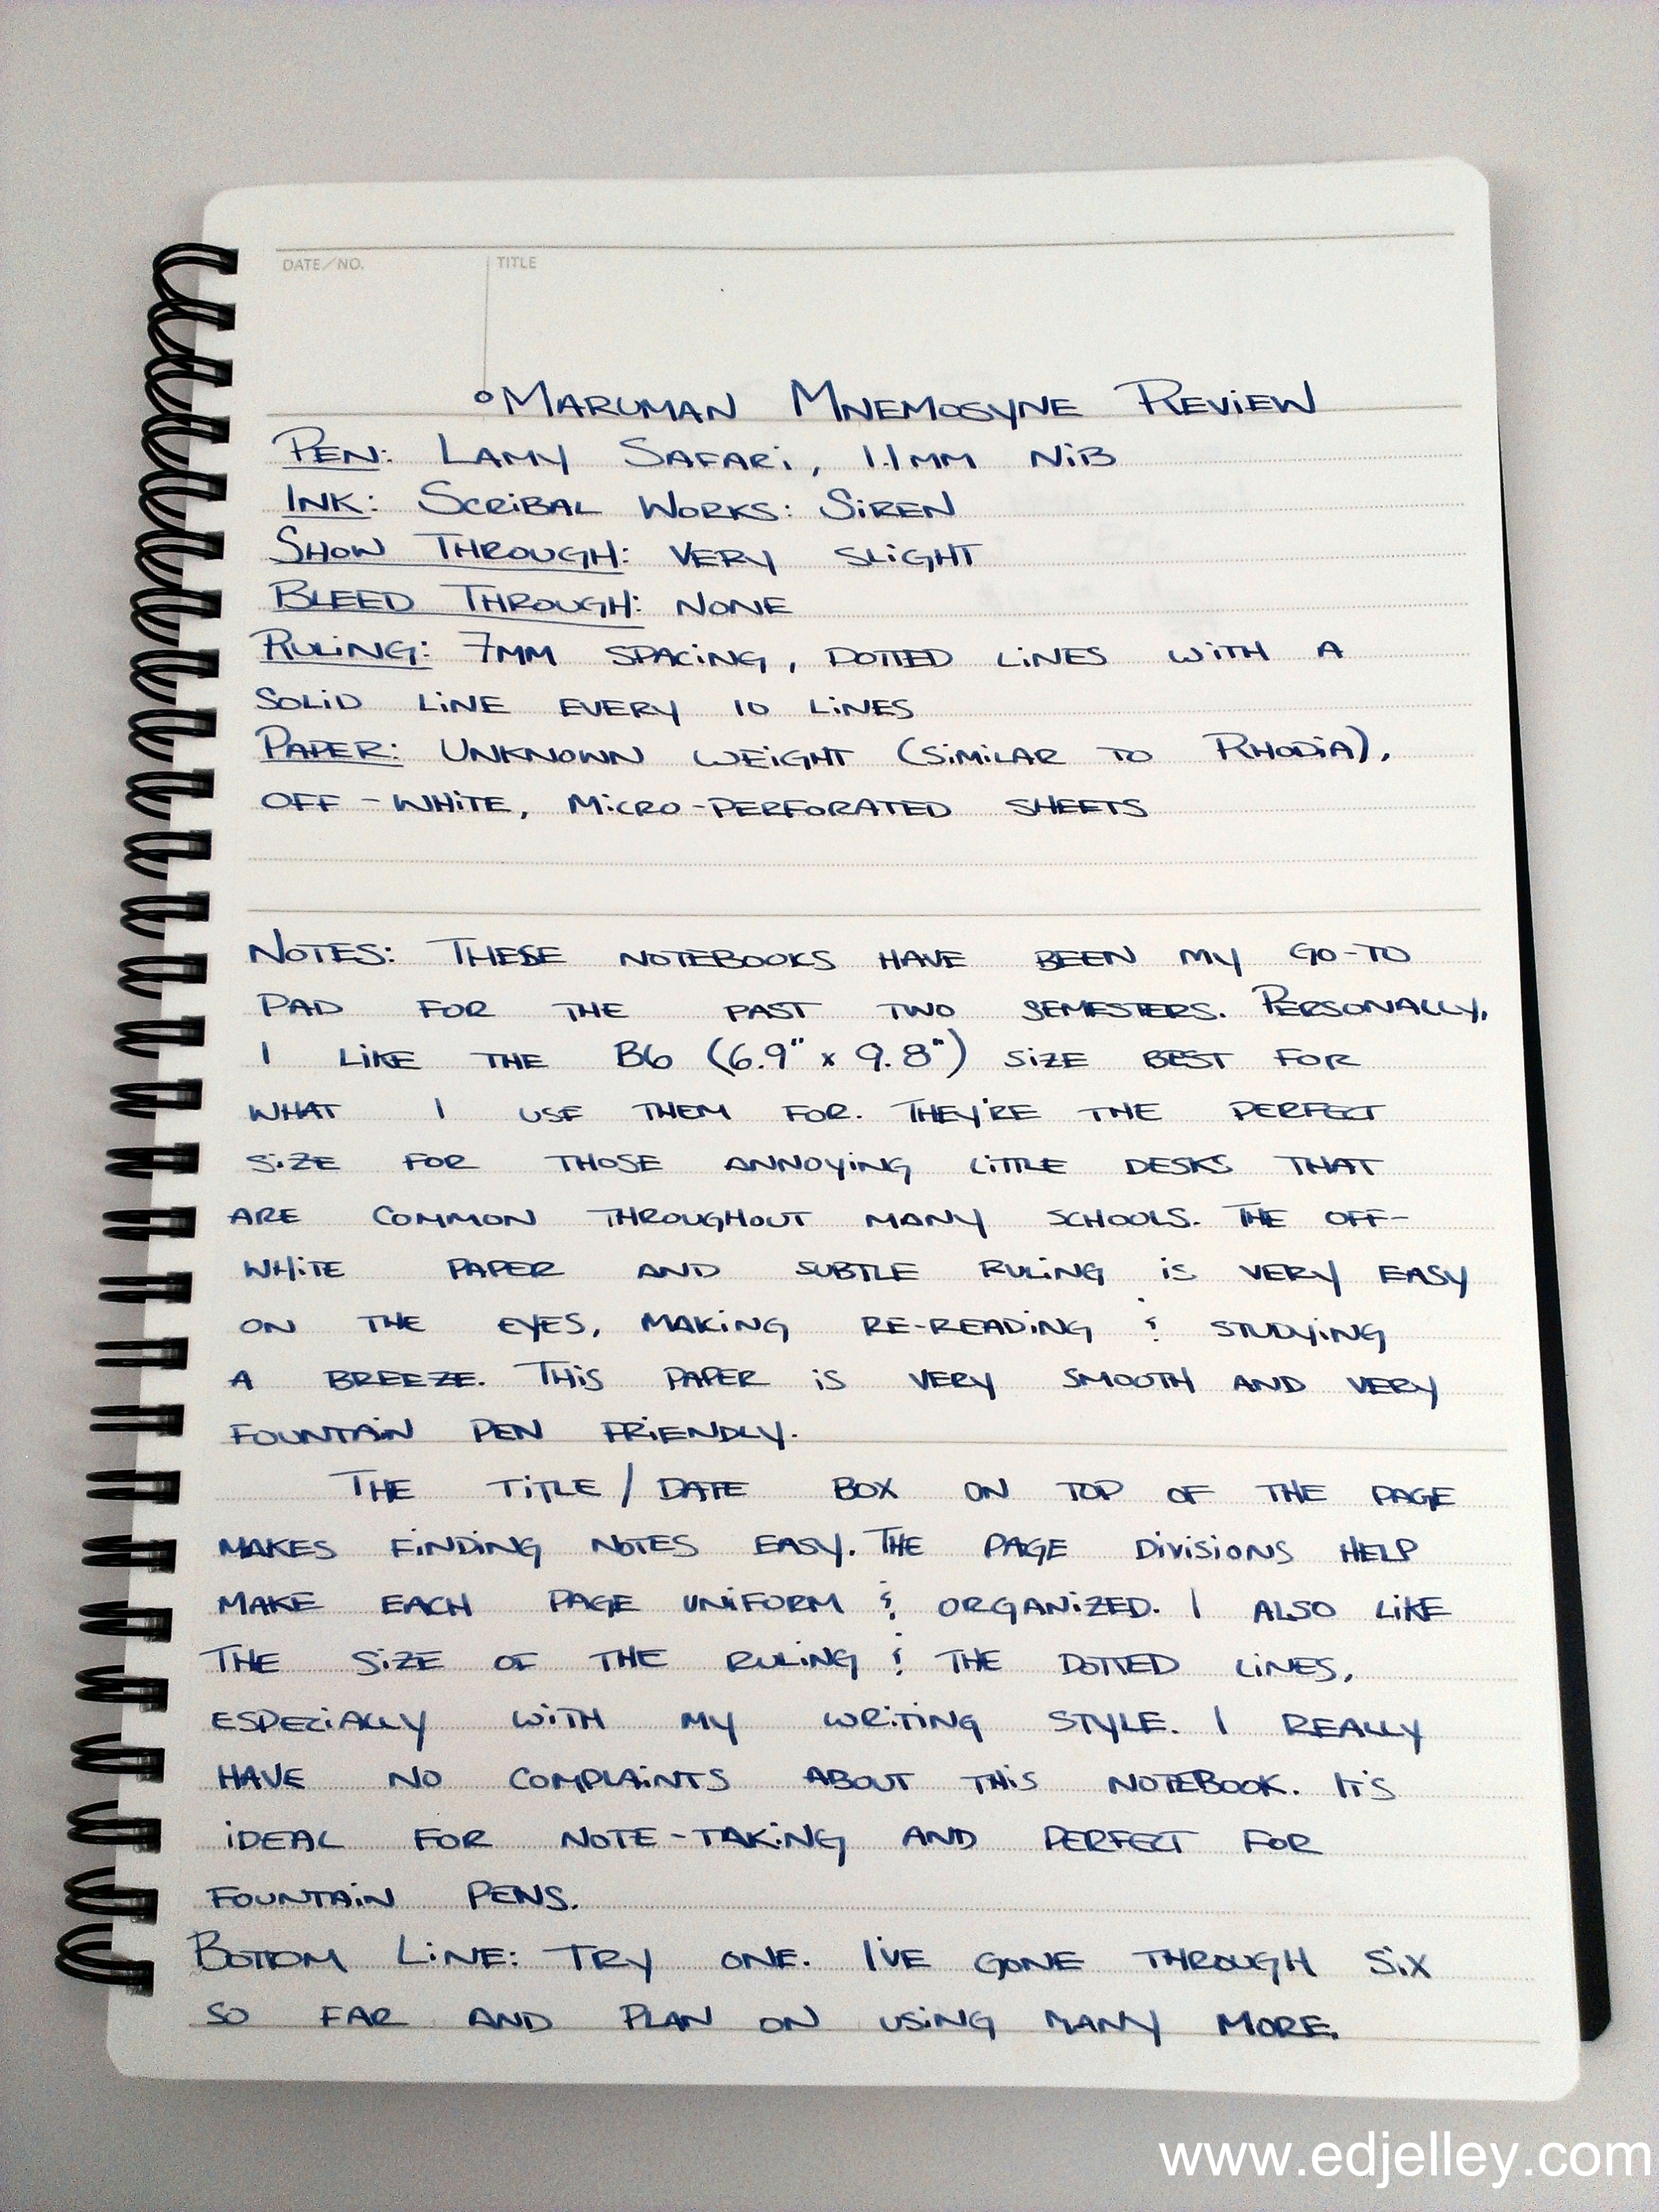 DATE/NO. TITLE
°MARUMAN MNEMOSYNE REVIEW
PEN: LAMY SAFARI, 1.1MM NIB
INK: SCRIBAL WORKS: SIREN
SHOW THROUGH: VERY SLIGHT
BLEED THROUGH: NONE
RULING: 7MM SPACING, DOTTED LINES WITH A
SOLID LINE EVERY 10 LINES
PAPER: UNKNOWN WEIGHT (SIMILAR TO RHODIA),
OFF-WHITE, MICRO-PERFORATED SHEETS
NOTES: THESE NOTEBOOKS HAVE BEEN MY GO-TO
PAD FOR THE PAST TWO SEMESTERS. PERSONALLY,
I LIKE THE B6 (6.9" x 9.8") SIZE BEST FOR
WHAT I USE THEM FOR. THEY'RE THE PERFECT
SIZE FOR THOSE ANNOYING LITTLE DESKS THAT
ARE COMMON THROUGHOUT MANY SCHOOLS. THE OFF-
WHITE PAPER AND SUBTLE RULING IS VERY EASY
ON THE EYES, MAKING RE-READING & STUDYING
A BREEZE. THIS PAPER IS VERY SMOOTH AND VERY
FOUNTAIN PEN FRIENDLY.
THE TITLE/DATE BOX ON TOP OF THE PAGE
MAKES FINDING NOTES EASY. THE PAGE DIVISIONS HELP
MAKE EACH PAGE UNIFORM & ORGANIZED. I ALSO LIKE
THE SIZE OF THE RULING & THE DOTTED LINES,
ESPECIALLY WITH MY WRITING STYLE. I REALLY
HAVE NO COMPLAINTS ABOUT THIS NOTEBOOK. IT'S
IDEAL FOR NOTE-TAKING AND PERFECT FOR
FOUNTAIN PENS.
BOTTOM LINE: TRY ONE. I'VE GONE THROUGH SIX
SO FAR AND PLAN ON USING MANY MORE.
www.edjelley.com